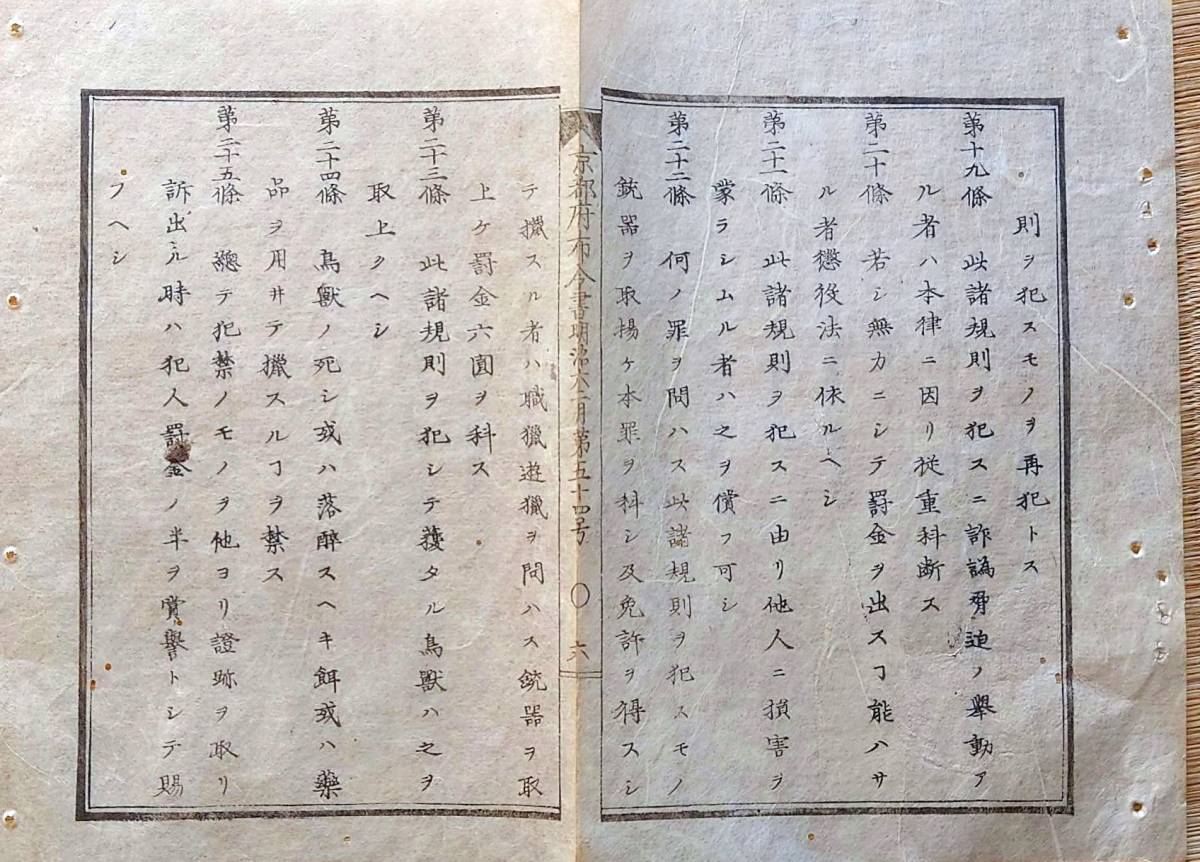 則ヲ犯スモノヲ再犯トス
第十九條 此諸規則ヲ犯スニ詐譌脅迫ノ舉動ア
ル者ハ本律ニ因リ從重科斷ス
第二十條 若シ無力ニシテ罰金ヲ出スヿ能ハサ
ル者懲役法ニ依ルヘシ
第二十一條 此諸規則ヲ犯スニ由リ他人ニ損害ヲ
蒙ラシムル者ハ之ヲ償フ可シ
第二十二條 何ノ罪ヲ問ハス此諸規則ヲ犯スモノ
銃器ヲ取揚ケ本罪ヲ科シ及免許ヲ得スシ
京都府布令書明治六一月第五十四号 〇 六
テ獵スル者ハ職獵遊獵ヲ問ハス銃器ヲ取
上ケ罰金六圓ヲ科ス
第二十三條 此諸規則ヲ犯シテ獲タル鳥獸ハ之ヲ
取上クヘシ
第二十四條 鳥獸ノ死シ或ハ落醉スヘキ餌或ハ藥
品ヲ用井テ獵スルヿヲ禁ス
第二十五條 總テ犯禁ノモノヲ他ヨリ證跡ヲ取リ
訴出ル時ハ犯人罰金ノ半ヲ賞譽トシテ賜
フヘシ